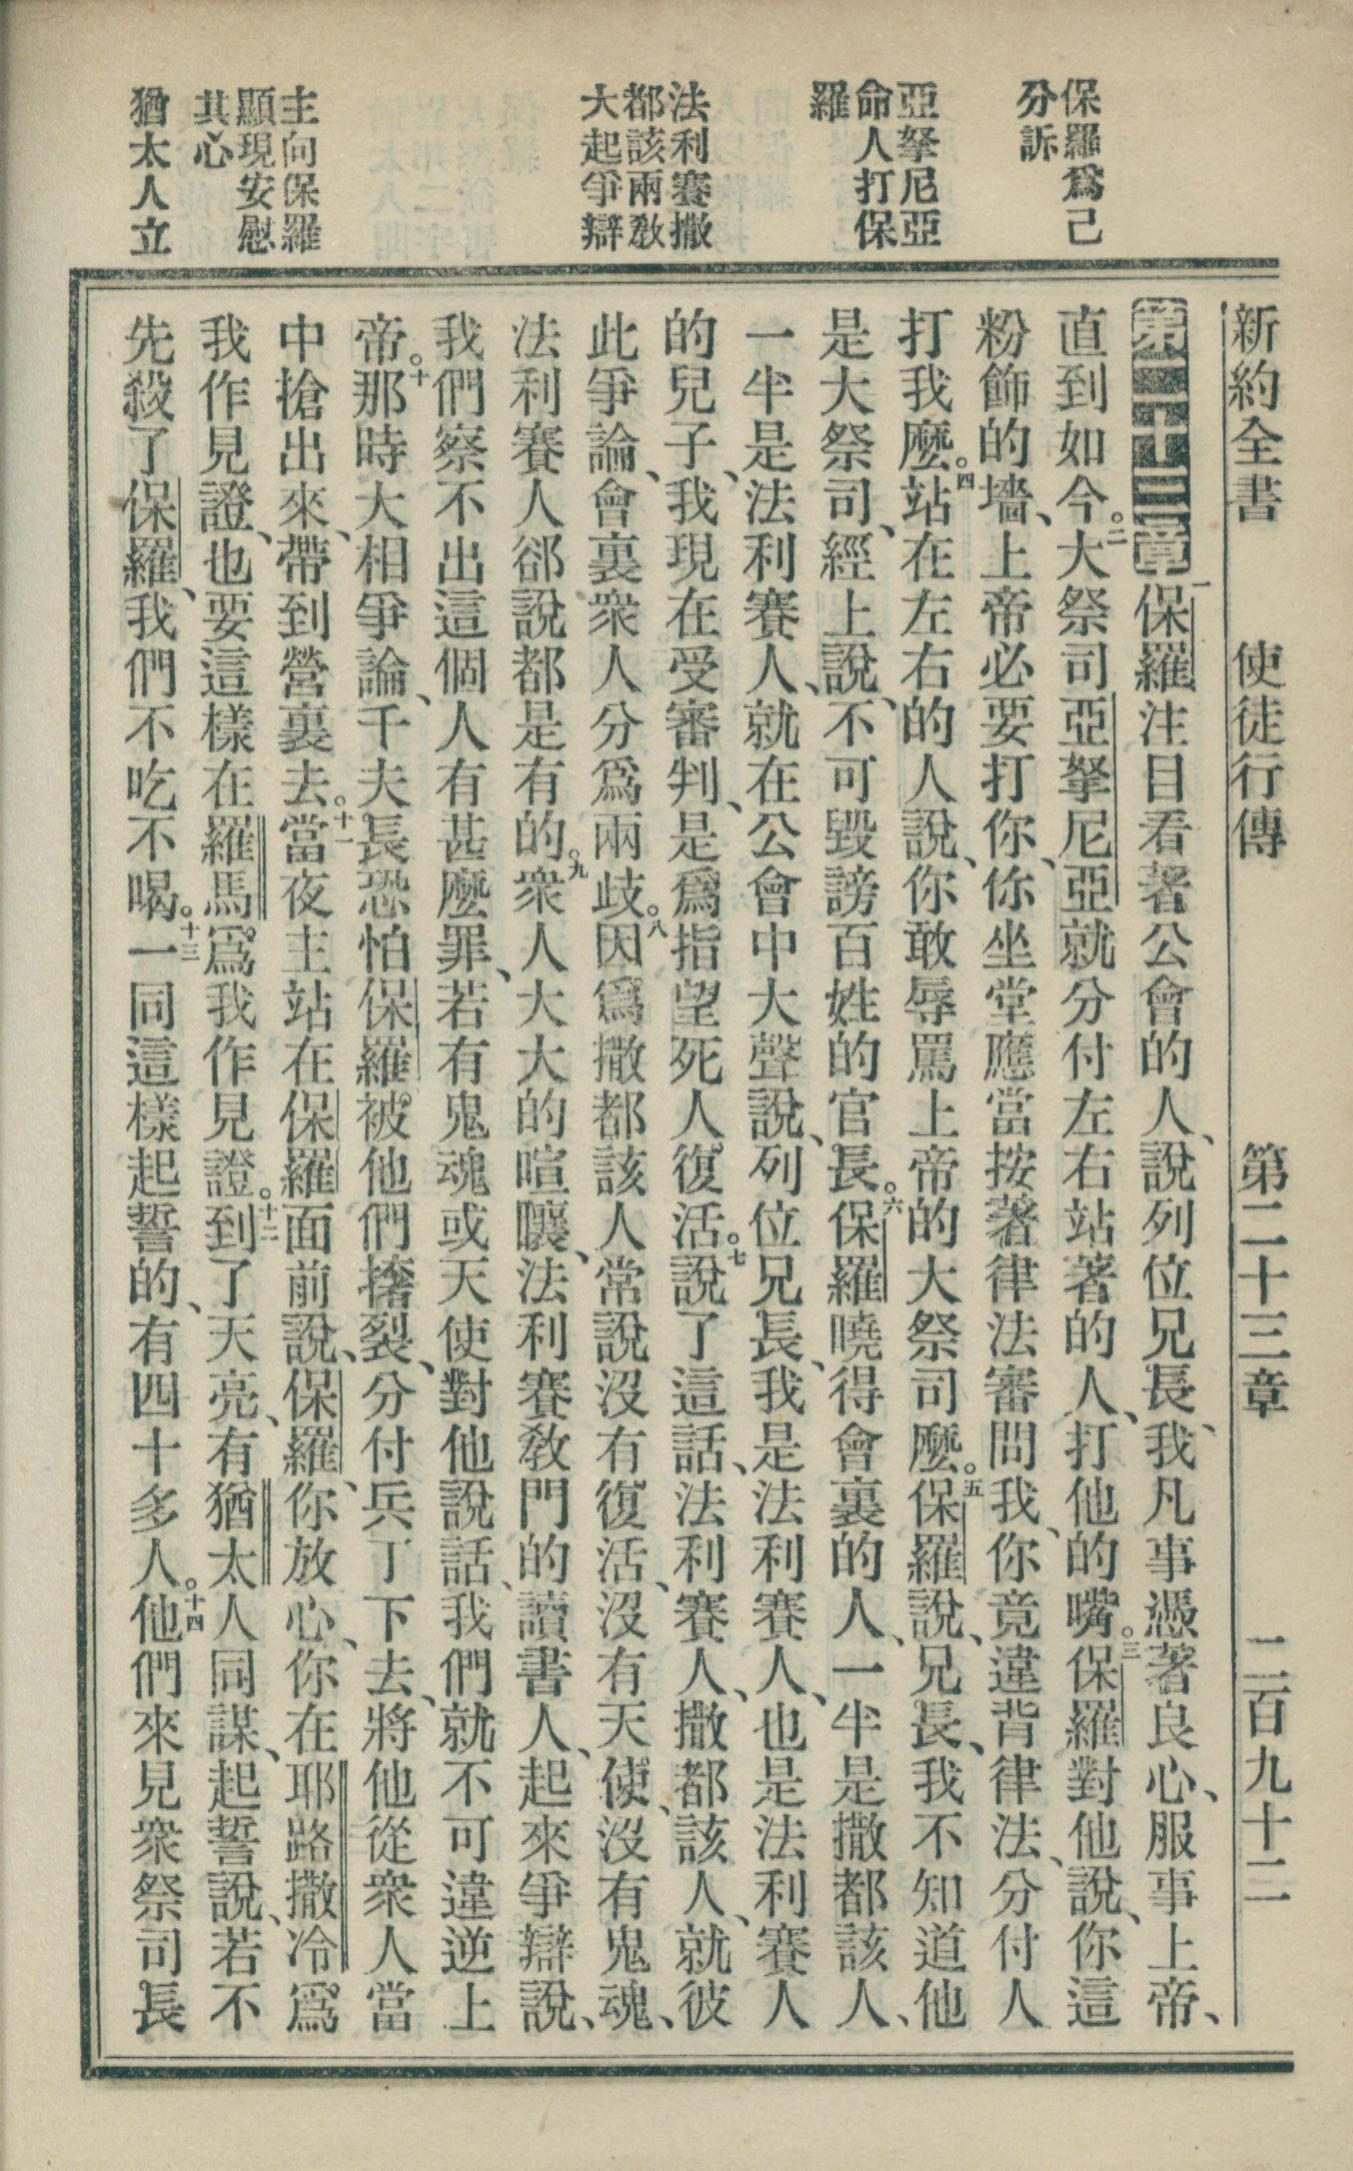 保羅爲己
分訴
亞拏尼亞
命人打保
羅
法利賽撒
都該兩敎
大起爭辯
主向保羅
顯現安慰
其心
猶太人立
新約全書 使徒行傳 第二十三章 二百九十二
第二十三章一保羅注目看著公會的人、說列位兄長、我凡事憑著良心、服事上帝、
直到如今。二大祭司亞拏尼亞就分付左右站著的人、打他的嘴。三保羅對他說、你這
粉飾的墻、上帝必要打你、你坐堂應當按著律法審問我、你竟違背律法、分付人
打我麼。四站在左右的人說、你敢辱罵上帝的大祭司麼。五保羅說、兄長、我不知道他
是大祭司、經上說、不可毀謗百姓的官長。六保羅曉得會裏的人、一半是撒都該人、
一半是法利賽人、就在公會中大聲說、列位兄長、我是法利賽人、也是法利賽人
的兒子、我現在受審判、是爲指望死人復活。七說了這話、法利賽人、撒都該人、就彼
此爭論、會裏衆人分爲兩歧。八因爲撒都該人常說沒有復活、沒有天使、沒有鬼魂、
法利賽人郤說都是有的。九衆人大大的喧嚷、法利賽敎門的讀書人、起來爭辯說、
我們察不出這個人有甚麼罪、若有鬼魂或天使對他說話、我們就不可違逆上
帝。十那時大相爭論、千夫長恐怕保羅被他們撦裂、分付兵丁下去、將他從衆人當
中搶出來、帶到營裏去。十一當夜主站在保羅面前說、保羅、你放心、你在耶路撒冷爲
我作見證、也要這樣在羅馬爲我作見證。十二到了天亮、有猶太人同謀、起誓說、若不
先殺了保羅、我們不吃不喝。十三一同這樣起誓的、有四十多人。十四他們來見衆祭司長